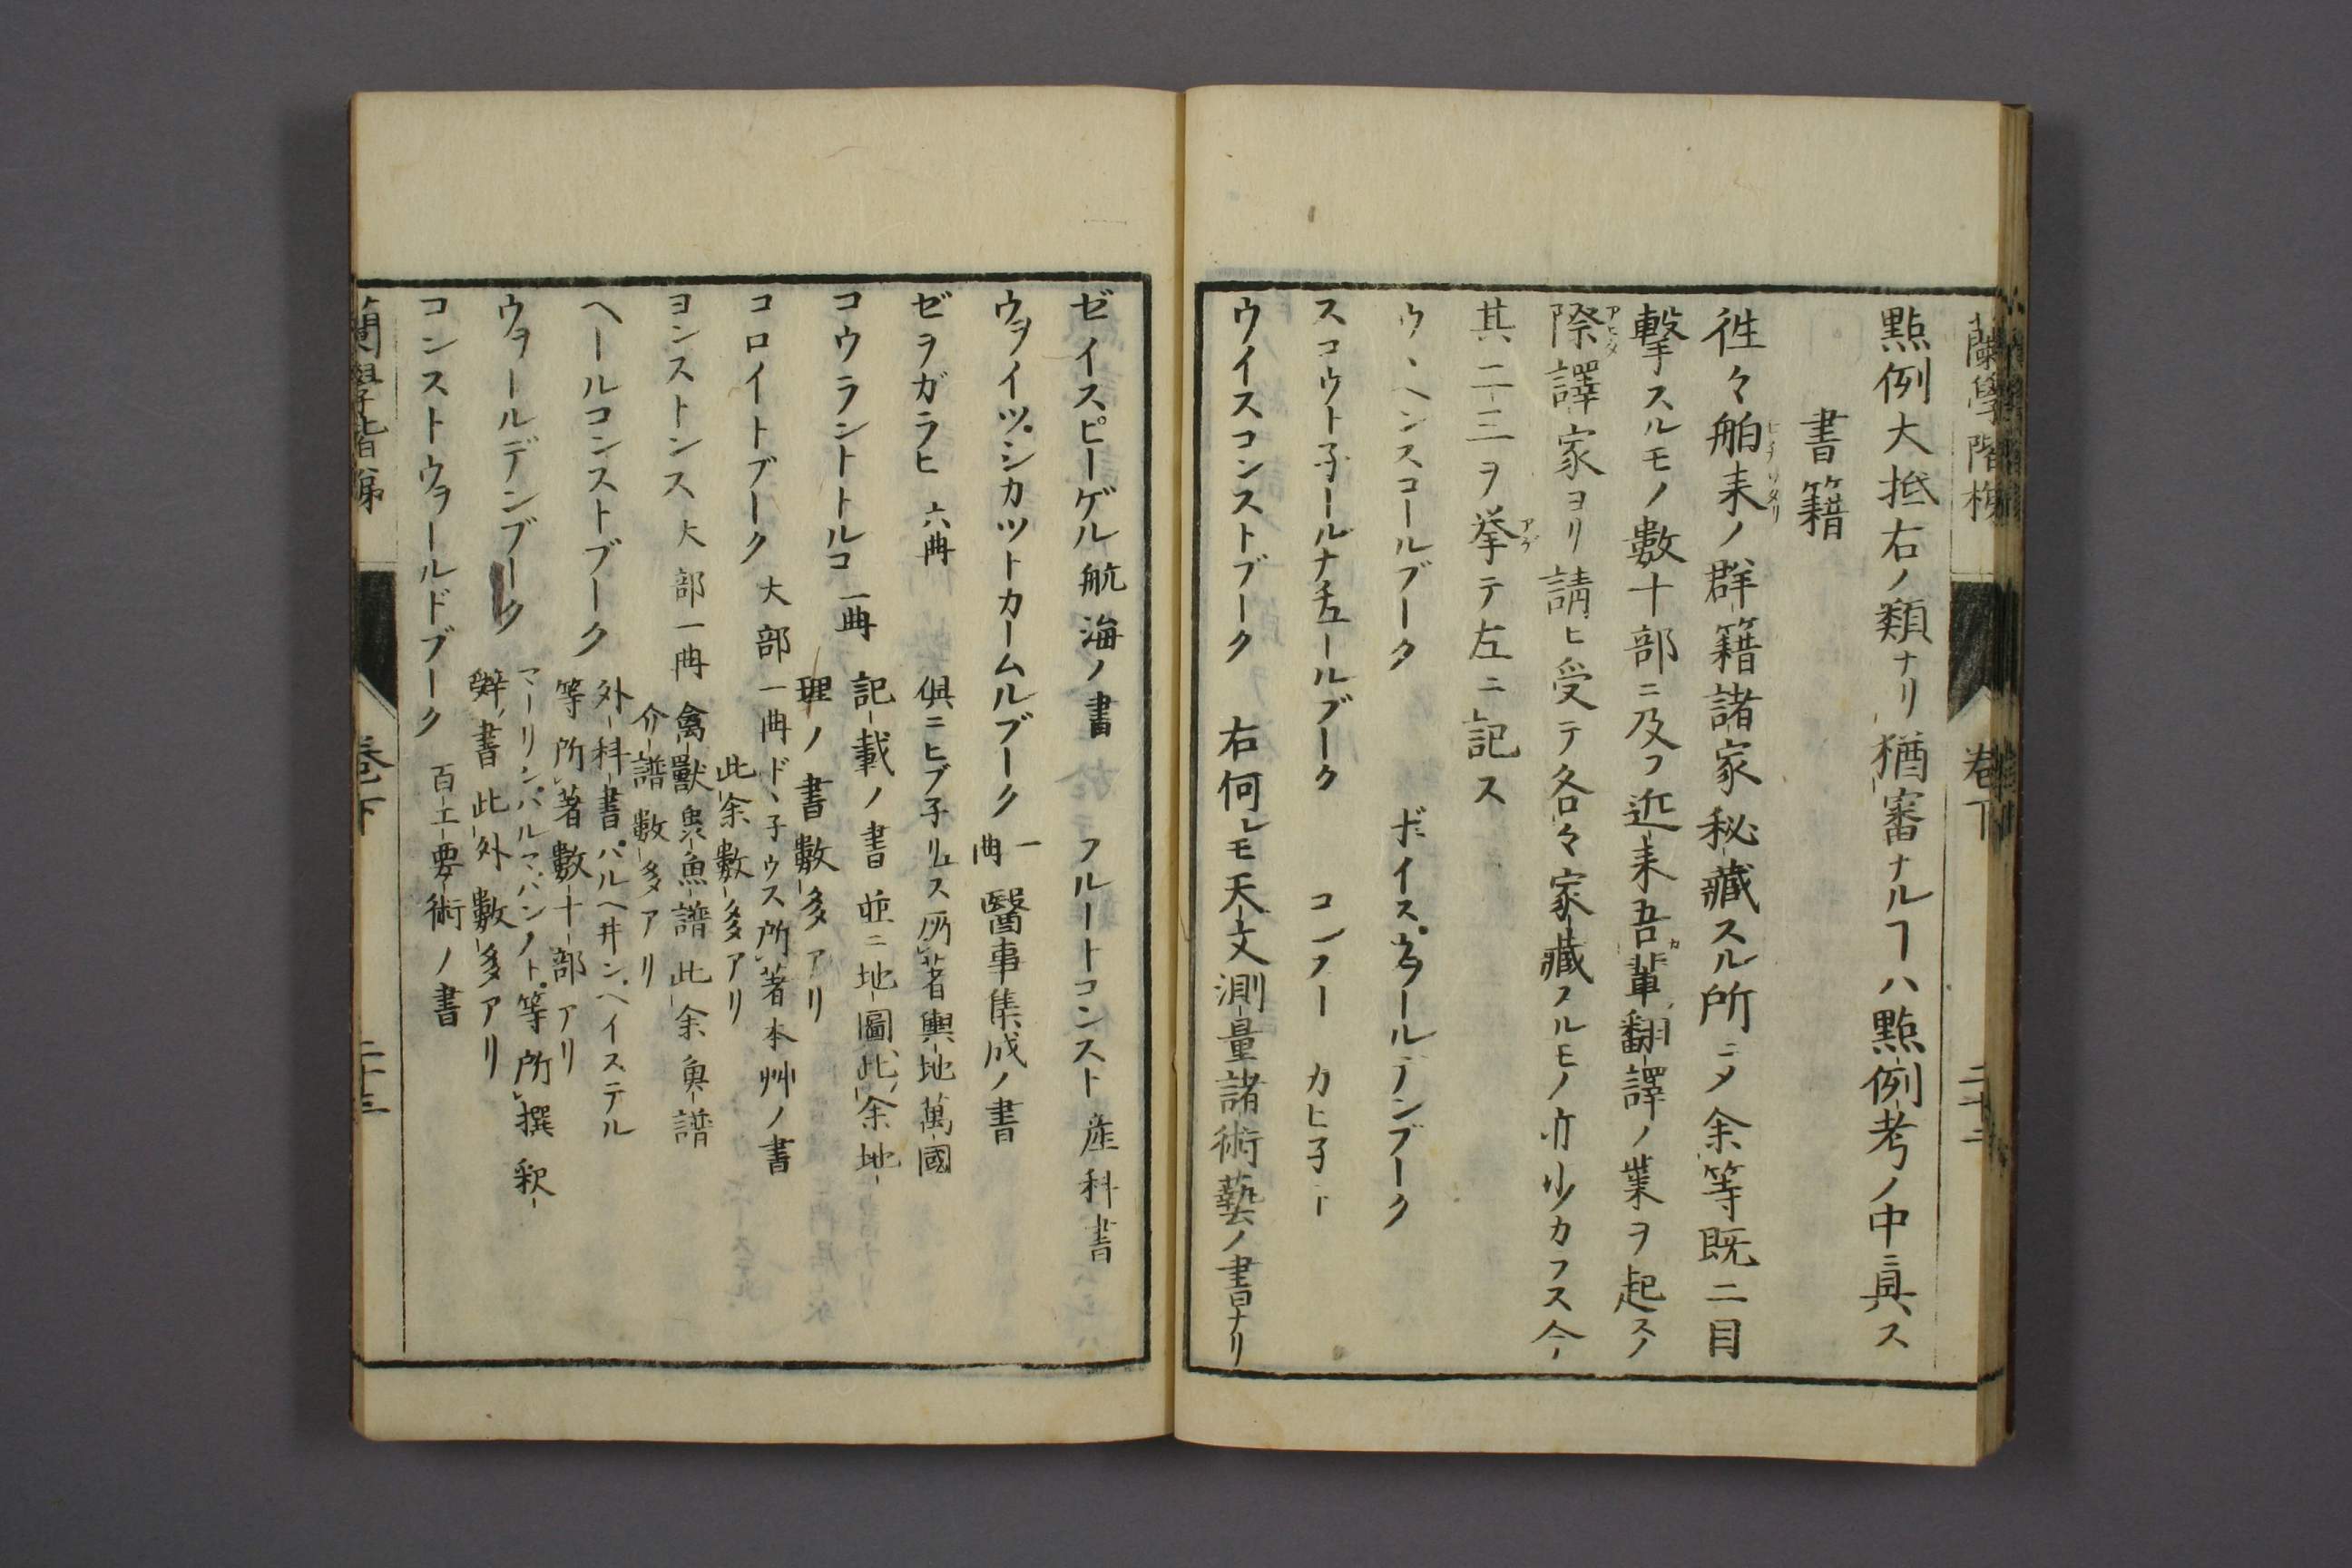 蘭學階梯 卷下 二十二
點例大抵右ノ類ナリ猶審ナルヿハ點例考ノ中ニ具ス
書籍
徃々舶来ノ群籍諸家秘藏スル所ニメ余等既ニ目
撃スルモノ數十部ニ及フ近来吾輩翻譯ノ業ヲ起スノ
際譯家ヨリ請ヒ受テ各々家藏スルモノ亦少カラス今
アヒダ
其二三ヲ挙テ左ニ記ス
アゲ
ウ、ヘンスコールブーク ボイス。ウヲールデンブーク
スコウト子ールナチュールブーク コンフー カヒ子ート
ウイスコンストブーク 右何レモ天文測量諸術藝ノ書ナリ
ゼイスピーゲル航海ノ書 フルートコンスト産科書
ウヲイツ。シカツトカームルブーク 一冊 醫事集成ノ書
ゼヲガラヒ 六冊 倶ニヒブ子リュス所著輿地萬國
コウラントトルコ 一冊 記載ノ書並ニ地圖此余地
理ノ書數多アリ
コロイトブーク 大部一冊ド、子ウス所著本艸ノ書
此余數多アリ
ヨンストンス 大部一冊 禽獸蟲魚譜此余魚譜
介譜數多アリ
ヘールコンストブーク 外科書パルヘヰン、ヘイステル
等所著數十部アリ
ウヲールデンブーク マーリン、パルマ、ハンノト。等所撰釈
辭書此外數多アリ
コンストウヲールドブーク 百工要術ノ書
蘭學階梯 卷下 二十三